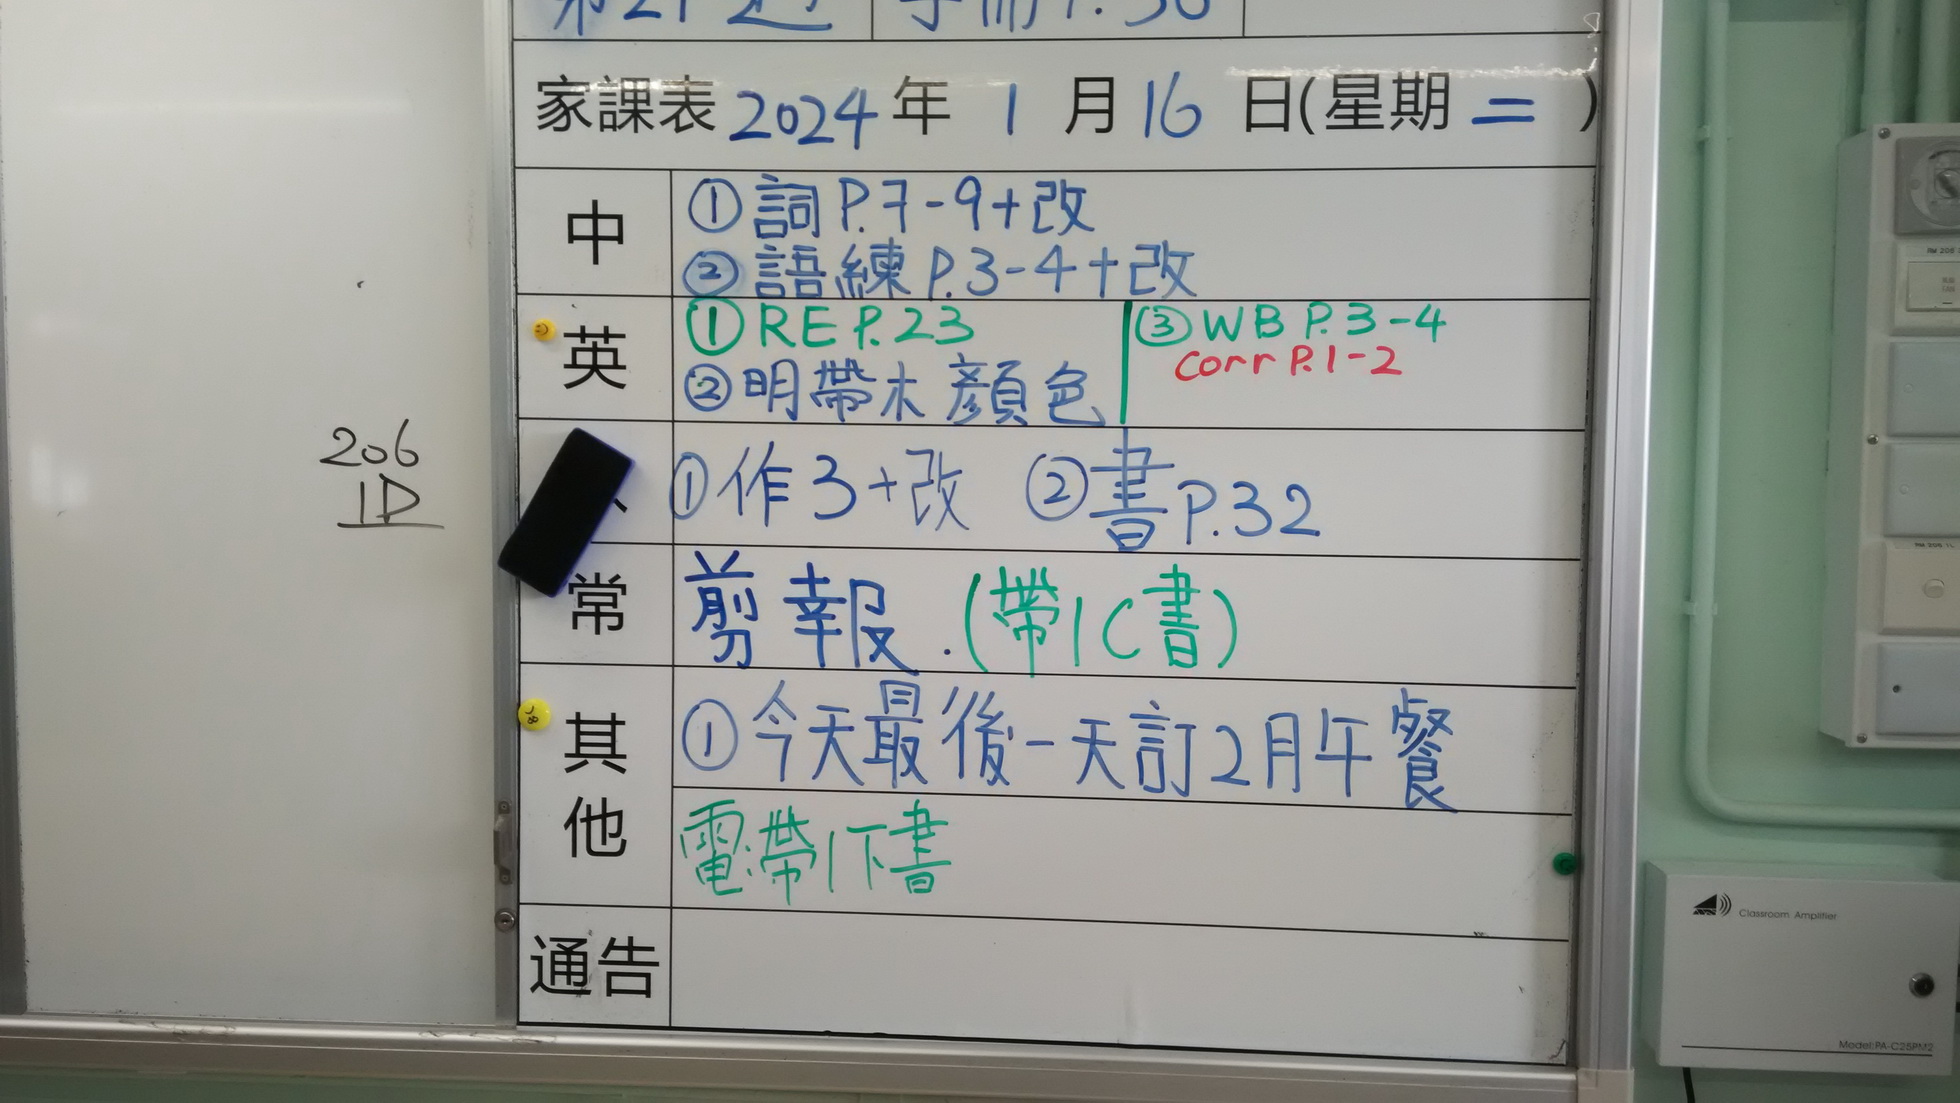 第21週 手冊P.30
家課表 2024 年 1 月 16 日(星期 二 )
中
①詞P.7-9+改
②語練P.3-4+改
英
①RE P.23
②明帶木顏色
③WB P.3-4
Corr P.1-2
①作3+改 ②書P.32
常
剪報.(帶1C書)
其他
①今天最後一天訂2月午餐
電:帶1下書
通告
206
1D
Classroom Amplifier
Model:PA-C25PM2